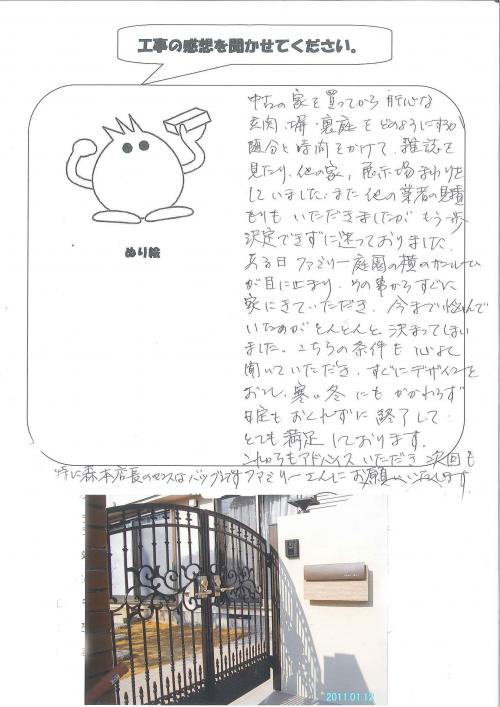 工事の感想を聞かせてください。
中古の家を買ってから肝心な
玄関、塀、裏庭をどのようにするか
随分と時間をかけて、雑誌を
見たり、他の家、展示場まわりを
していました。また他の業者の見積
もりもいただきましたが もう一歩
決定できずに迷っておりました。
ある日 ファミリー庭園の横のガンルーム
が目に止まり、その事からすぐに
家にきていただき、今まで悩んで
いたのがとんとんと 決まってしまい
ました。こちらの条件も 心よく
聞いていただき、すぐにデザインを
おこし、寒い冬にもかかわらず
日定もおくれずに 終了して
とても満足しております。
これからもアドバイスいただき 次回も
特に森本店長のセンスはバツグンです ファミリーさんにお願いいたします。
ぬり絵
2011.01.12